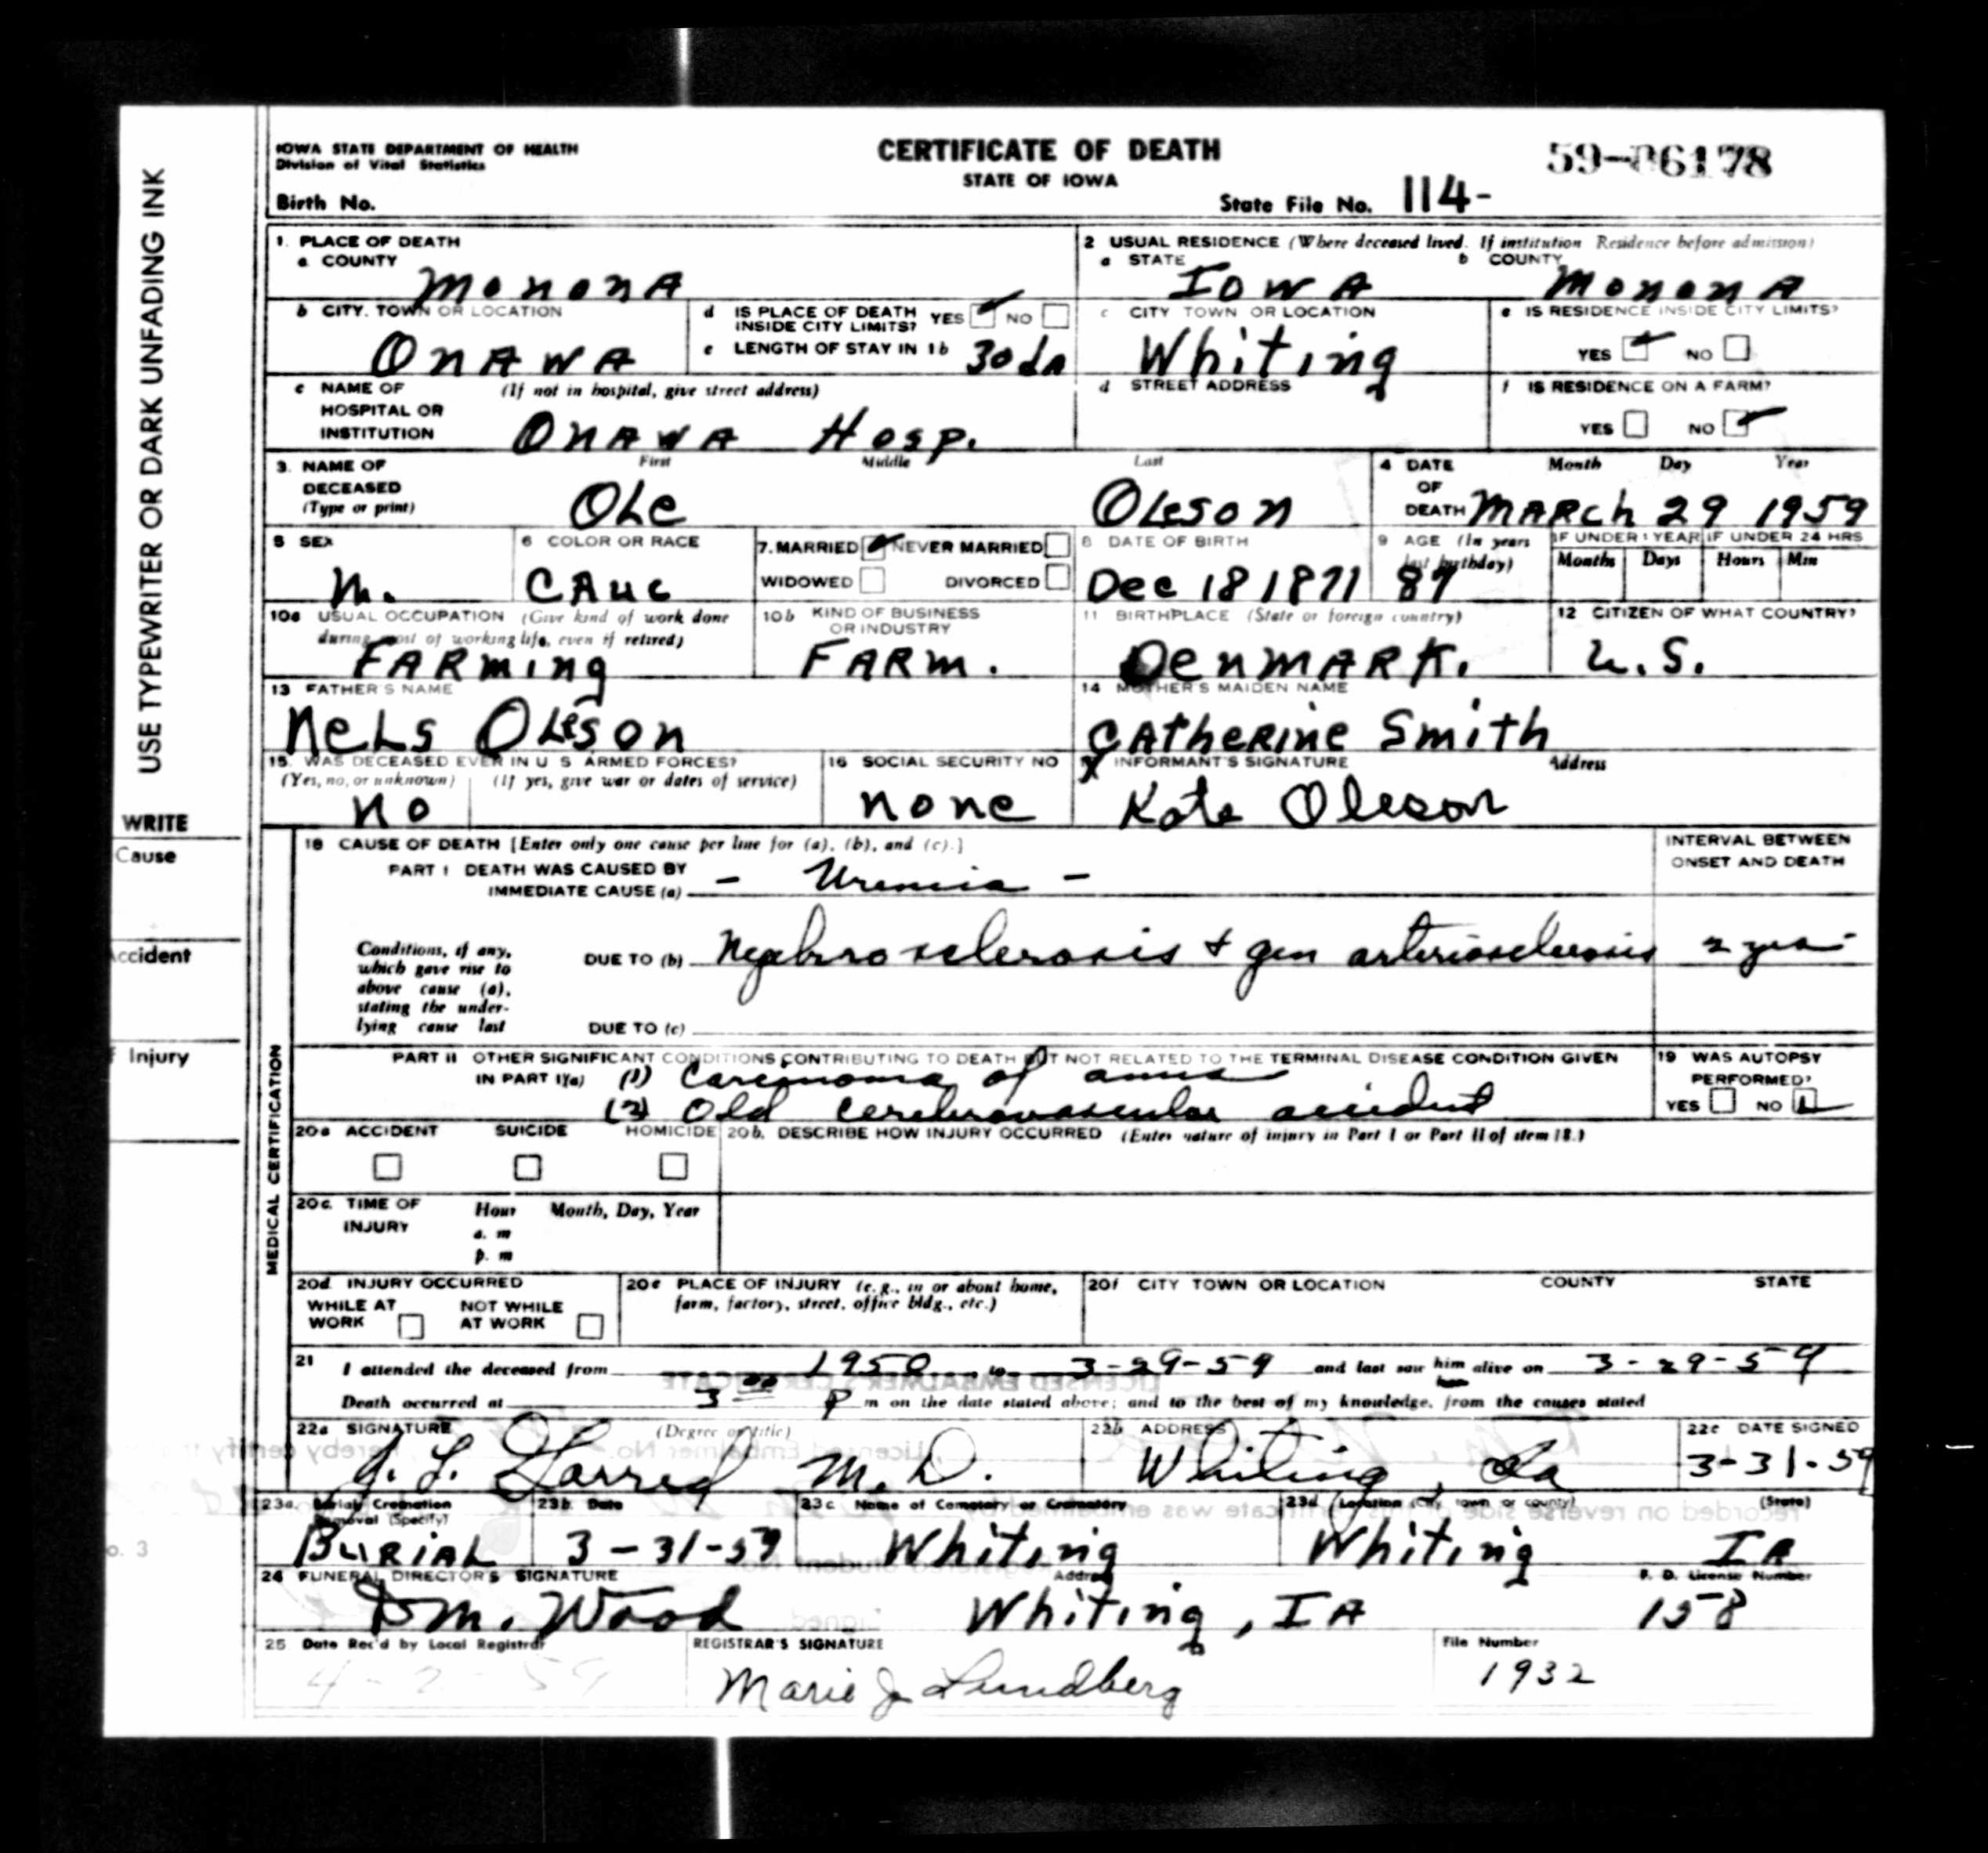 IOWA STATE DEPARTMENT OF HEALTH
Division of Vital Statistics
CERTIFICATE OF DEATH
STATE OF IOWA
59-06178
Birth No.
State File No. 114-
USE TYPEWRITER OR DARK UNFADING INK
WRITE
Cause
Accident
f Injury
o. 3
1. PLACE OF DEATH
a COUNTY
Monona
2 USUAL RESIDENCE (Where deceased lived. If institution Residence before admission)
a STATE
Iowa
b COUNTY
Monona
b CITY. TOWN OR LOCATION
Onawa
d IS PLACE OF DEATH INSIDE CITY LIMITS? YES NO
e LENGTH OF STAY IN 1b 30 da
c CITY TOWN OR LOCATION
Whiting
e IS RESIDENCE INSIDE CITY LIMITS?
YES NO
c NAME OF HOSPITAL OR INSTITUTION (If not in hospital, give street address)
Onawa Hosp.
d STREET ADDRESS
f IS RESIDENCE ON A FARM?
YES NO
3. NAME OF DECEASED (Type or print)
First Middle Last
Ole Oleson
4 DATE OF DEATH
Month Day Year
March 29 1959
5 SEX
M.
6 COLOR OR RACE
Cauc
7. MARRIED NEVER MARRIED
WIDOWED DIVORCED
8 DATE OF BIRTH
Dec 18 1871
9 AGE (In years last birthday)
87
IF UNDER 1 YEAR IF UNDER 24 HRS
Months Days Hours Min
10a USUAL OCCUPATION (Give kind of work done during most of working life, even if retired)
Farming
10b KIND OF BUSINESS OR INDUSTRY
Farm.
11 BIRTHPLACE (State or foreign country)
Denmark.
12 CITIZEN OF WHAT COUNTRY?
U.S.
13 FATHER'S NAME
Nels Oleson
14 MOTHER'S MAIDEN NAME
Catherine Smith
15. WAS DECEASED EVER IN U S ARMED FORCES?
(Yes, no, or unknown) (If yes, give war or dates of service)
no
16 SOCIAL SECURITY NO
none
INFORMANT'S SIGNATURE Address
Kate Oleson
MEDICAL CERTIFICATION
18 CAUSE OF DEATH [Enter only one cause per line for (a), (b), and (c).]
INTERVAL BETWEEN ONSET AND DEATH
PART I DEATH WAS CAUSED BY
IMMEDIATE CAUSE (a) - Uremia -
Conditions, if any, which gave rise to above cause (a), stating the underlying cause last
DUE TO (b) Nephrosclerosis + gen arteriosclerosis 2 yrs
DUE TO (c)
PART II OTHER SIGNIFICANT CONDITIONS CONTRIBUTING TO DEATH BUT NOT RELATED TO THE TERMINAL DISEASE CONDITION GIVEN
IN PART I(a) (1) Carcinoma of anus
(2) Old cerebrovascular accident
19 WAS AUTOPSY PERFORMED?
YES NO
20a ACCIDENT SUICIDE HOMICIDE
20b. DESCRIBE HOW INJURY OCCURRED (Enter nature of injury in Part I or Part II of item 18.)
20c. TIME OF INJURY Hour Month, Day, Year
a. m
p. m
20d INJURY OCCURRED
WHILE AT WORK NOT WHILE AT WORK
20e PLACE OF INJURY (e.g., in or about home, farm, factory, street, office bldg., etc.)
20f CITY TOWN OR LOCATION COUNTY STATE
21 I attended the deceased from 1950 to 3-29-59 and last saw him alive on 3-29-59
Death occurred at 3 00 P m on the date stated above; and to the best of my knowledge, from the causes stated
22a SIGNATURE (Degree or title)
J. L. Garred M.D.
22b ADDRESS
Whiting, Ia
22c DATE SIGNED
3-31-59
23a. Burial, Cremation Removal (Specify)
Burial
23b Date
3-31-59
23c Name of Cemetery or Crematory
Whiting
23d (Location (City town or county) (State)
Whiting IA
24 FUNERAL DIRECTOR'S SIGNATURE
DM. Wood
Address
Whiting, IA
F. D. License Number
158
25 Date Rec'd by Local Registrar
4-2-59
REGISTRAR'S SIGNATURE
Marie J Lundberg
File Number
1932